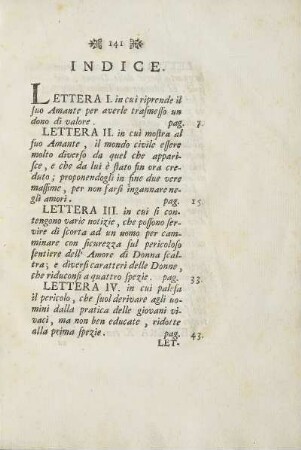 141
INDICE.
LETTERA I. in cui riprende il
suo Amante per averle trasmesso un
dono di valore. pag. 7.
LETTERA II. in cui mostra al
suo Amante, il mondo civile essere
molto diverso da quel che appari-
sce, e che da lui è stato fin ora cre-
duto; proponendogli in fine due vere
massime, per non farsi ingannare ne-
gli amori. pag. 15.
LETTERA III. in cui si con-
tengono varie notizie, che possono ser-
vire di scorta ad un uomo per cam-
minare con sicurezza sul pericoloso
sentiere dell' Amore di Donna scal-
tra; e diversi caratteri delle Donne,
che riduconsi a quattro spezie. pag. 33.
LETTERA IV. in cui palesa
il pericolo, che suol derivare agli uo-
mini dalla pratica delle giovani vi-
vaci, ma non ben educate, ridotte
alla prima spezie. pag. 43.
LET-